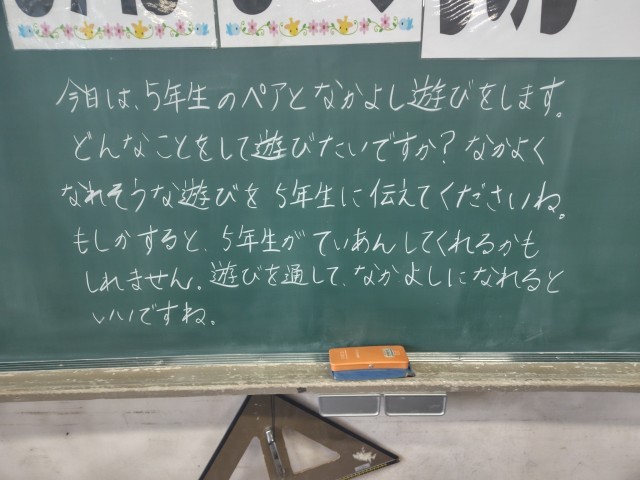 今日は、5年生のペアとなかよし遊びをします。
どんなことをして遊びたいですか？なかよく
なれそうな遊びを5年生に伝えてくださいね。
もしかすると、5年生がていあんしてくれるかも
しれません。遊びを通して、なかよしになれると
いいですね。